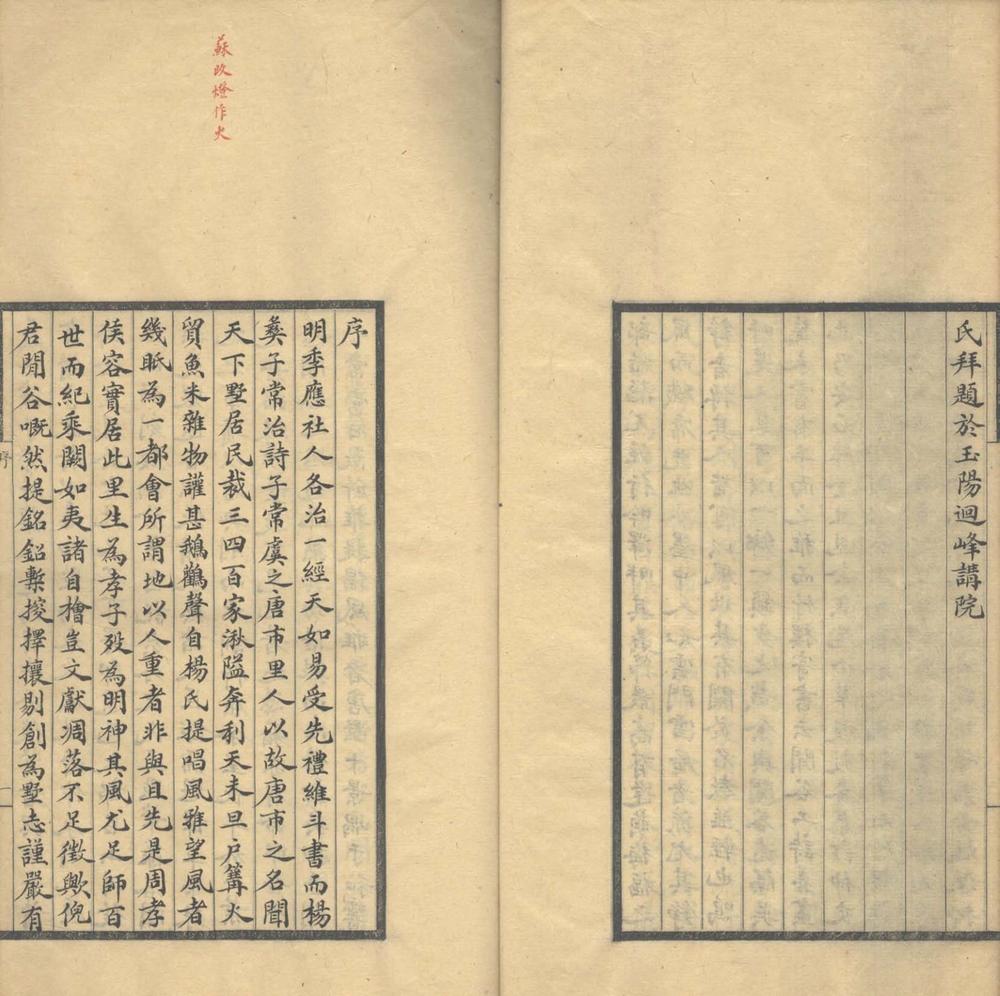 氏拜題於玉陽迴峰講院
蘇改燈作火
序
明季應社人各治一經天如易受先禮維斗書而楊
彜子常治詩子常虞之唐市里人以故唐市之名聞
天下墅居民裁三四百家湫隘奔利天未旦戶篝火
貿魚米雜物讙甚鵝鸛聲自楊氏提唱風雅望風者
幾眂為一都會所謂地以人重者非與且先是周孝
侯容實居此里生為孝子殁為明神其風尤足師百
世而紀乘闕如夷諸自檜豈文獻凋落不足徵歟倪
君聞谷嘅然提銘鉊槧掞擇攘剔創為墅志謹嚴有
序
一